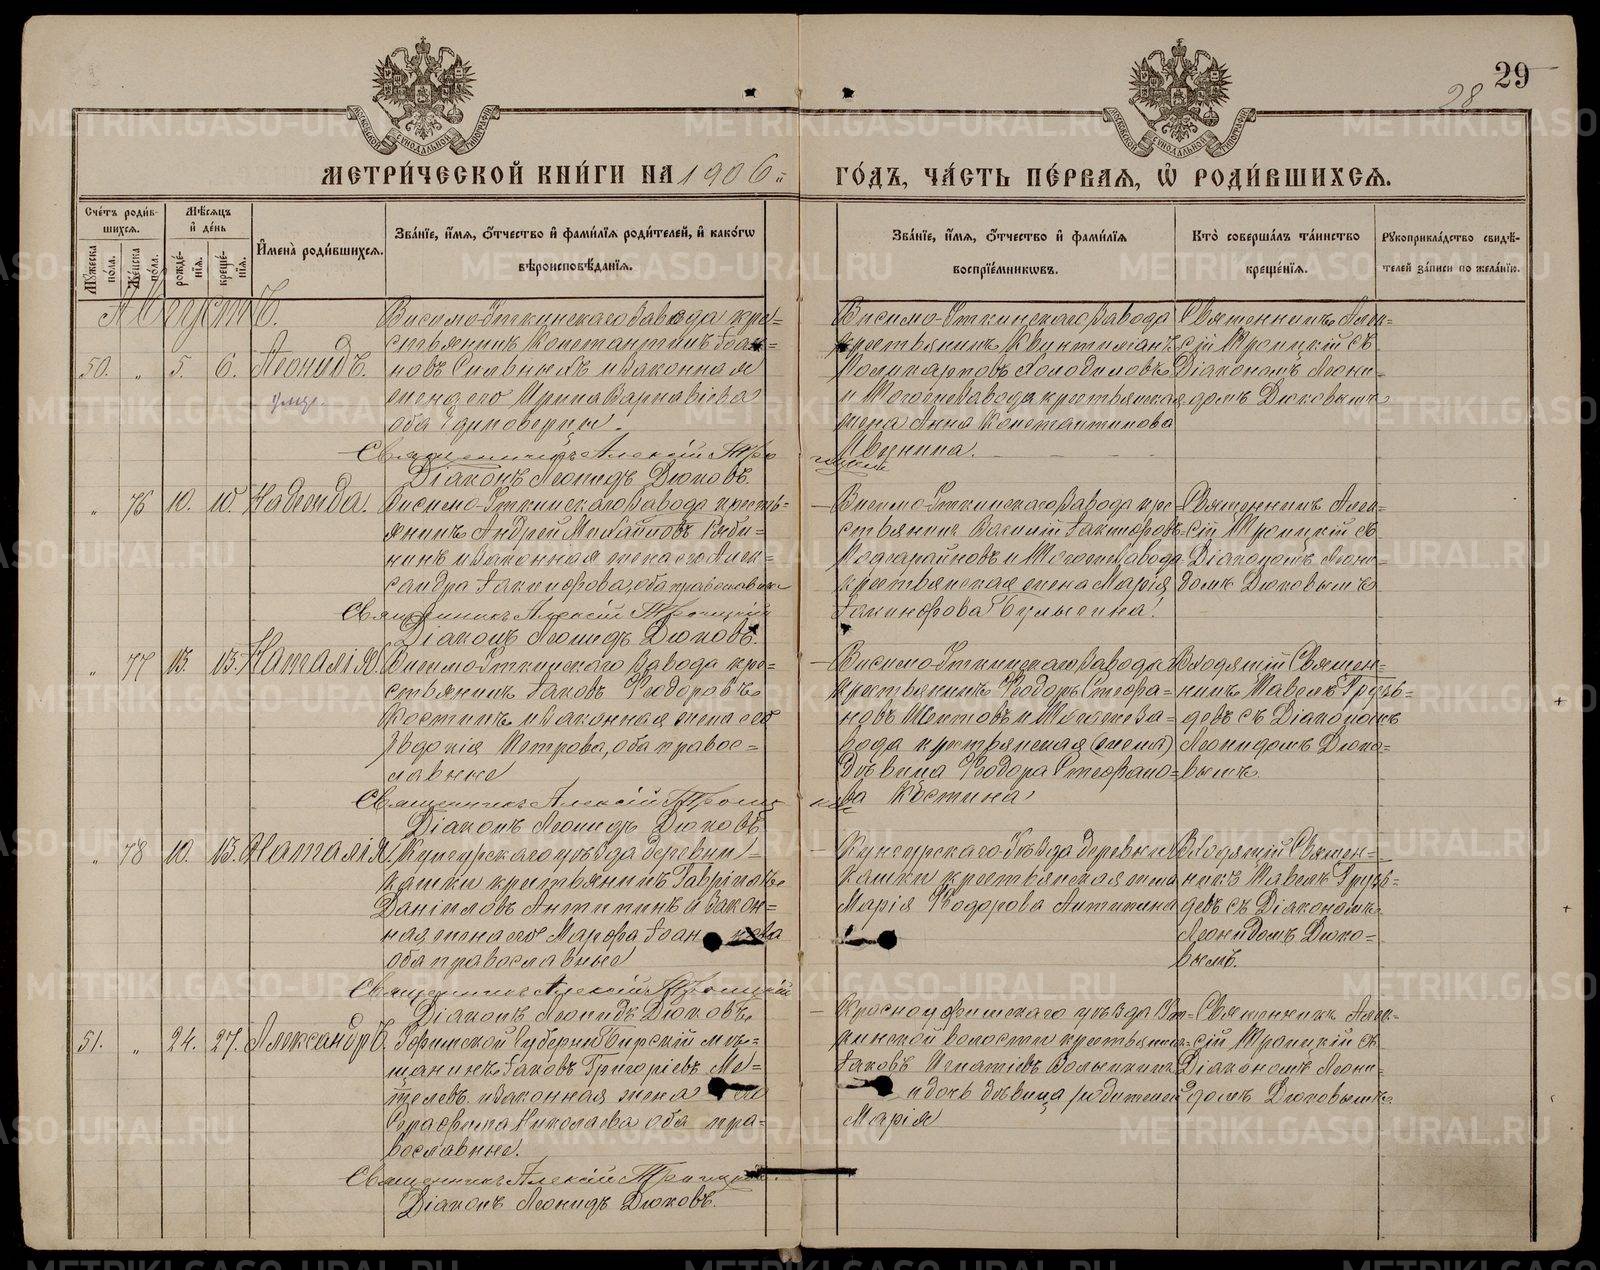 29
28
МЕТРИ́ЧЕСКОЙ КНИ́ГИ НА 1906
ГО́ДЪ, ЧА́СТЬ ПЕ́РВАЯ, Ѡ҆ РОДИ́ВШИХСѦ.
Сче́тъ роди́в-
шихсѧ.
Мꙋ́жеска по́ла.
Же́нска по́ла.
Мѣ́сѧцъ
и҆ де́нь
рожде́-
нїѧ.
креще́-
нїѧ.
И҆мена̀ роди́вшихсѧ.
Зва́нїе, и҆́мѧ, ѻ҆́тчество и҆ фами́лїѧ роди́телей, и҆ како́гѡ
вѣроисповѣ́данїѧ.
Зва́нїе, и҆́мѧ, ѻ҆́тчество и҆ фами́лїѧ
воспрїе́мникѡвъ.
Кто̀ соверша́лъ та́инство
креще́нїѧ.
Рꙋкоприкла́дство свидѣ́-
телей за́писи по жела́нїю.
Августъ.
50. „ 5. 6. Леонидъ.
Висимо-Уткинскаго Завода кре=
стьянинъ Константинъ Іоан=
новъ Сильныхъ и законная
жена его Ирина Варнавіева
оба единоверцы.
Священникъ Алексій Тро
ицкій
Діаконъ Леонидъ Дюковъ.
Висимо-Уткинскаго Завода
крестьянинъ Квинтиліанъ
Поликарповъ Холодиловъ
и Тогоже Завода крестьянская
жена Анна Константинова
Священникъ Алек=
сій Троицкій съ
Діакономъ Леони-
домъ Дюковымъ
„ 76 10. 10. Надежда.
Висимо-Уткинскаго Завода кресть=
янинъ Андрей Михайловъ
и законная жена его Алек=
сандра оба православные
Священникъ Алексій Троицкій
Діаконъ Леонидъ Дюковъ.
Висимо-Уткинскаго Завода кре=
стьянинъ Василій
и Тогоже Завода
крестьянская жена Марія
Священникъ Алек=
сій Троицкій съ
Діакономъ Леони-
домъ Дюковымъ
„ 77 13. 13. Наталія.
Висимо-Уткинскаго Завода кре=
стьянинъ Іаковъ Ѳеодоровъ
Костинъ и законная жена его
Евдокія Петрова, оба правос=
лавные
Священникъ Алексій Троиц
кій
Діаконъ Леонидъ Дюковъ
Висимо-Уткинскаго Завода
крестьянинъ Ѳеодоръ Стефа=
новъ и Тогоже За=
вода крестьянская (жена)
Дѣвица Ѳеодора Стефано=
ва Костина
Входящій Священ=
никъ Павелъ Груз=
девъ съ Діакономъ
Леонидомъ Дюко=
вымъ.
„ 78 10. 13. Наталія
Кунгурскаго уѣзда деревни
Кашки крестьянинъ Гавріилъ
Даніиловъ Антипинъ и закон=
ная жена его Марфа
оба православные
Священникъ Алексій Троицкій
Діаконъ Леонидъ Дюковъ.
Кунгурскаго Уѣзда деревни
Кашки крестьянская жена
Марія Ѳеодорова Антипина
Входящій Священ=
никъ Павелъ Груз=
девъ съ Діакономъ
Леонидомъ Дюко=
вымъ.
51. „ 24. 27. Александръ.
Уфимской Губерніи Бирскій мѣ=
щанинъ Іаковъ Григоріевъ Ме=
щелевъ и законная жена его
Серафима Николаева оба пра=
вославные.
Священникъ Алексій Троицкій.
Діаконъ Леонидъ Дюковъ.
Красноуфимскаго уѣзда Ут=
кинской волости крестьянинъ
Іаковъ Игнатіевъ Волынкинъ
и дочь дѣвица родителей
Марія
Священникъ Алек=
сій Троицкій съ
Діакономъ Леони-
домъ Дюковымъ.
METRIKI.GASO-URAL.RU